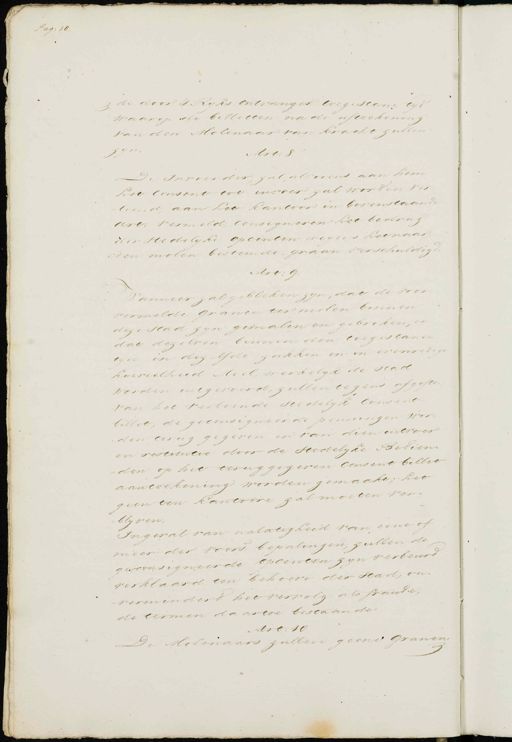 Pag. 10.
de door 's Rijks ontvanger toegestane tijd
waarop die billetten na de afteekening
van den Molenaar van kracht zullen
zyn.
Art. 8
De Invoerder zal alvorens aan hem
het Consent tot invoer zal worden ver
leend, aan het kantoor in bovenstaande
Art. vermeld, consigneren het bedrag
der Stedelijke accynsen wegens het naar
den molen bestemde graan verschuldigd.
Art. 9
Wanneer zal gebleken zyn, dat de voor
vermelde Granen en molen binnen
deze stad zyn gemalen en gebroken, en
dat dezelve binnen den toegestanen
tyd in dezelfde zakken en in evenredige
hoeveelheid meel werkelyk de Stad
worden uitgevoerd, zullen tegens afgifte
van het verleende stedelyk Consent
billet, de geconsigneerde penningen wor
den terug gegeven en van dien uitvoer
en restitutie door de Stedelyke Bedien
den op het terug gegeven Consent billet
aanteekening worden gemaakt, het
geen ten kantore zal moeten ver
blyven.
Ingeval van nalatigheid van eene of
meer der voorz. bepalingen, zullen de
geconsigneerde accynsen zyn verbeurd
verklaard ten behoeve der stad, on
verminderd het vervolg als fraude,
de termen daartoe bestaande
Art. 10
De Molenaars zullen geene Granen